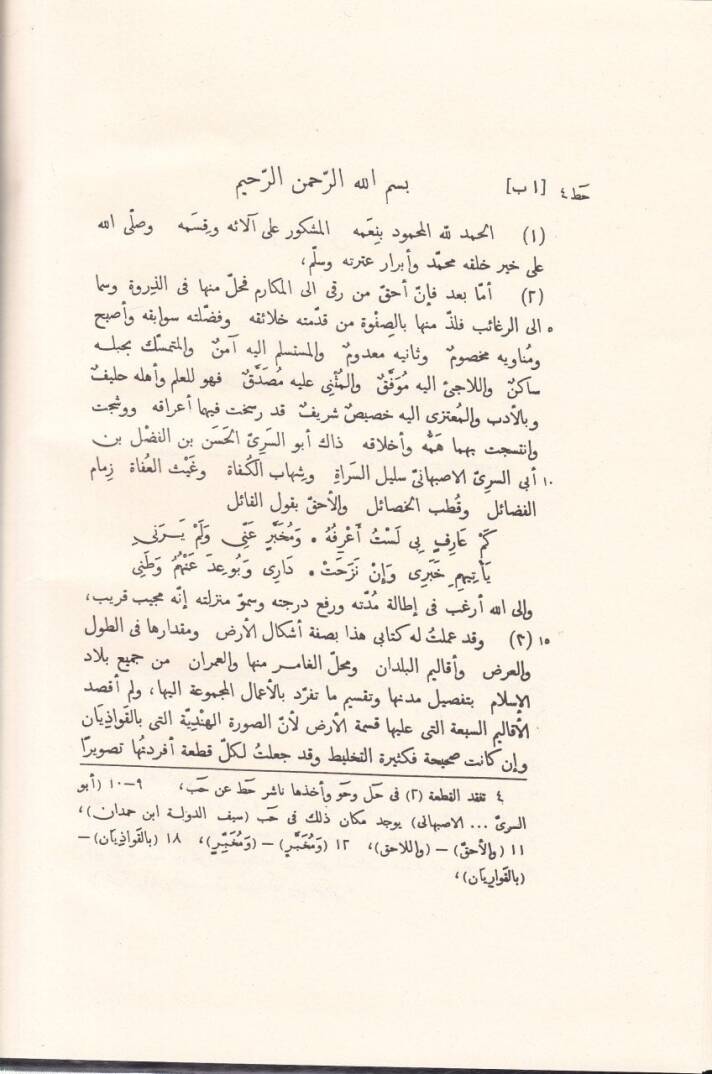 حَط ٤ [١ ب] بسم الله الرّحمن الرّحيم
(١) الحمد لله المحمود بنِعَمه المشكور على آلائه وقِسَمه وصلّى الله
على خير خلقه محمّد وأبرار عترته وسلّم،
(٢) أمّا بعد فإنّ أحقّ من رقى الى المكارم فحلّ منها فى الذِروة وسما
٥ الى الرغائب فلذّ منها بالصِفْوة من قدّمته خلائقه وفضّلته سوابقه وأصبح
ومُناويه مخصومٌ وثانيه معدومٌ والمستسلم اليه آمنٌ والمتمسّك بحبله
ساكنٌ واللاجئ اليه مُوَفَّقٌ والمُثْنِى عليه مُصَدَّقٌ فهو للعلم وأهله حليفٌ
وبالأدب والمُعتزى اليه خصيصٌ شريفٌ قد رسخت فيهما أعراقه ووشجت
وانتسجت بهما هَمُّه وأخلاقه ذاك أبو السرىّ الحَسَن بن الفضْل بن
١٠ أبى السرىّ الاصبهانىّ سليل السَراةِ وشِهاب الكُفاة وغَيْث العُفاة زِمام
الفضائل وقُطب الخصائل والأحقّ بقول القائل
كَمْ عَارِفٍ بِى لَسْتُ أَعْرِفُهُ ٠ وَمُخَبَّرٍ عَنِّى وَلَمْ يَـرَنِى
يَأْتِيهِمِ خَبَرِى وَإِنْ نَزَحَتْ ٠ دَارِى وَبُوعِدَ عَنْهُمُ وَطَنِى
والى الله أرغب فى إطالة مُدّته ورفع درجته وسموّ منزلته إنّه مجيب قريب،
١٥ (٣) وقد عملتُ له كتابى هذا بصفة أشكال الأرض ومقدارها فى الطول
والعرض وأقاليم البلدان ومحلّ الغامـر منها والعمران من جميع بلاد
الإسلام بتفصيل مدنها وتقسيم ما تفرّد بالأعمال المجموعة اليها، ولم أقصد
الأقاليم السبعة التى عليها قسمة الأرض لأنّ الصورة الهِنْديّة التى بالقَواذِيَان
وإن كانت صحيحة فكثيرة التخليط وقد جعلتُ لكلّ قطعة أفردتُها تصويرًا
٤ تفقد القطعة (٢) فى حَل وحَو وأخذها ناشر حَط عن حَب، ٩-١٠ (أبو
السرىّ ... الاصبهانى) يوجد مكان ذلك فى حَب (سيف الدولـة ابن حمدان)،
١١ (والأحقّ) – (واللاحق)، ١٢ (وَمُخَبَّرٍ) – (وَمُخَبِّرٍ)، ١٨ (بالقَواذِيَان) –
(بالقَوارِيَان)،